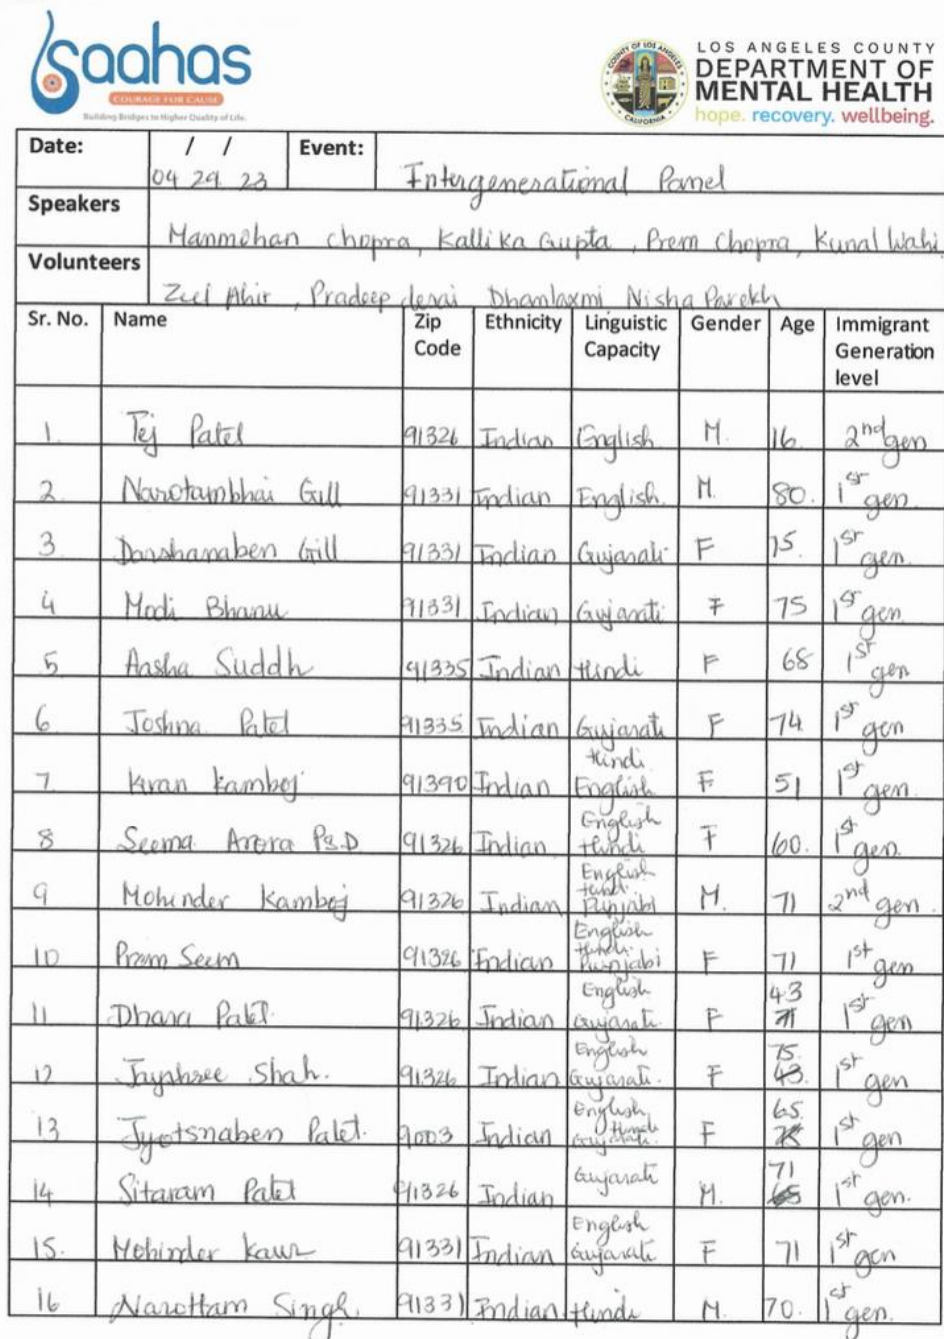 Saahas
COURAGE FOR CAUSE
Building Bridges to Higher Quality of Life.
COUNTY OF LOS ANGELES
CALIFORNIA
LOS ANGELES COUNTY
DEPARTMENT OF
MENTAL HEALTH
hope. recovery. wellbeing.
Date: 04/29/23 Event: Intergenerational Panel
Speakers Manmohan chopra, Kallika Gupta, Prem Chopra, Kunal Wahi
Volunteers Zeel Ahir, Pradeep desai Dhanlaxmi Nisha Parekh
Sr. No. Name Zip Code Ethnicity Linguistic Capacity Gender Age Immigrant Generation level
1. Tej Patel 91326 Indian English M. 16. 2nd gen
2. Narotambhai Gill 91331 Indian English. M. 80. 1st gen.
3 Darshanaben Gill 91331 Indian Gujarati F 75. 1st gen.
4 Modi Bhanu 91331 Indian Gujarati F 75 1st gen.
5 Aasha Suddh 91335 Indian Hindi F 68 1st gen
6 Joshna Patel 91335 Indian Gujarati F 74 1st gen
7 Kiran Kamboj 91390 Indian Hindi English F 51 1st gen.
8 Seema Arora Ps.D 91326 Indian English Hindi F 60. 1st gen.
9 Mohinder Kamboj 91326 Indian English Hindi Punjabi M. 71 2nd gen.
10 Prem Seem 91326 Indian English Hindi Punjabi F 71 1st gen
11 Dhara Patel 91326 Indian English Gujarati F 43 1st gen
12 Jayshree Shah. 91326 Indian English Gujarati. F 75. 1st gen
13 Jyotsnaben Patel. 9003 Indian English Hindi Gujarati. F 65. 1st gen
14 Sitaram Patel 91326 Indian Gujarati M. 71 1st gen.
15. Mohinder Kaur 91331 Indian English Gujarati F 71 1st gen
16 Narottam Singh. 91331 Indian Hindi M. 70. 1st gen.